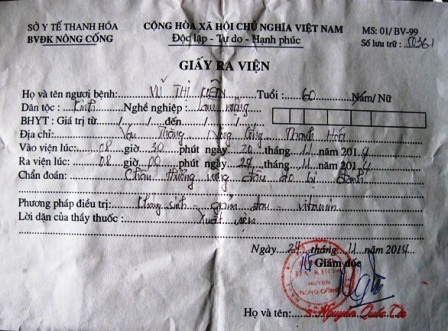 SỞ Y TẾ THANH HÓA
BVĐK NÔNG CỐNG
CỘNG HÒA XÃ HỘI CHỦ NGHĨA VIỆT NAM
Độc lập - Tự do - Hạnh phúc
MS: 01/BV-99
Số lưu trữ:
GIẤY RA VIỆN
Họ và tên người bệnh: VŨ THỊ Tuổi: 60 Nam/ Nữ
Dân tộc: Kinh Nghề nghiệp: Làm ruộng
BHYT: Giá trị từ / / đến / /
Địa chỉ: Vạn Thắng Nông Cống Thanh Hóa
Vào viện lúc: 08 giờ 30 phút ngày 20 tháng 11 năm 2014
Ra viện lúc: 08 giờ 00 phút ngày 24 tháng 11 năm 2014
Chẩn đoán: Chấn thương vùng đầu do bị đánh
Phương pháp điều trị: Kháng sinh giảm đau vitamin
Lời dặn của thầy thuốc: Xuất viện
Ngày 24 tháng 11 năm 2014
Giám đốc
Họ và tên: Nguyễn Quốc